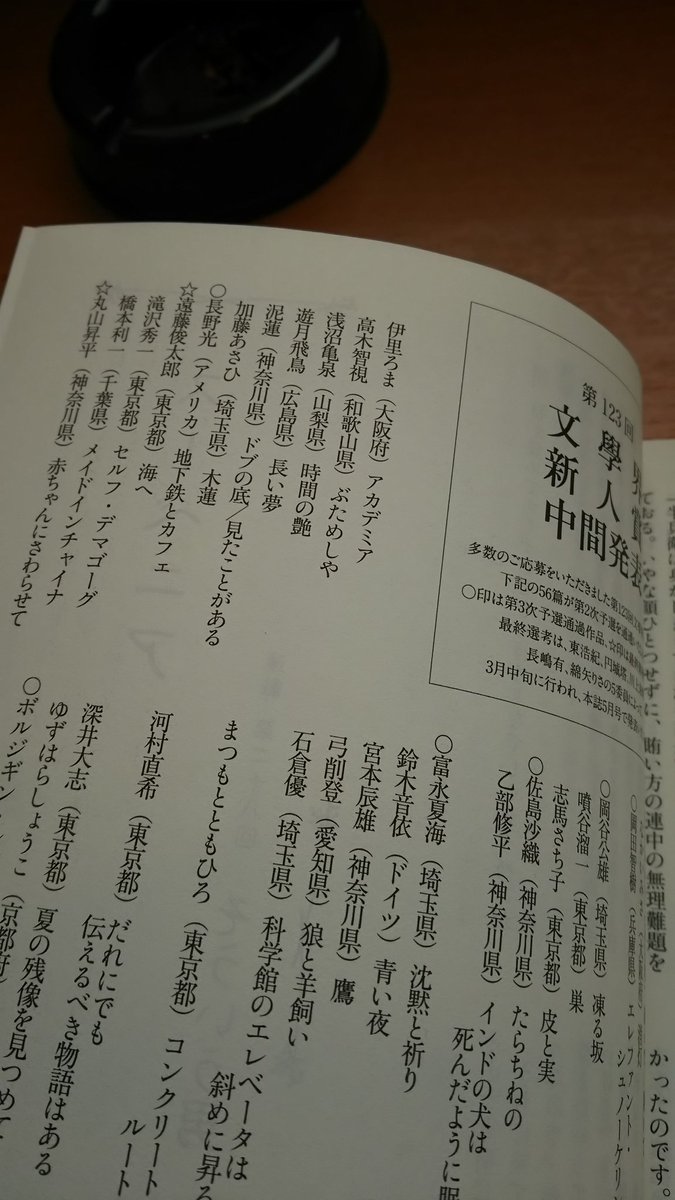 第123回
文學界
新人賞
中間発表
多数のご応募をいただきました第123回
下記の56篇が第2次予選を通過
○印は第3次予選通過作品、☆印は
最終選考は、東浩紀、円城塔、川上
長嶋有、綿矢りさの5委員によって
3月中旬に行われ、本誌5月号で発表
伊里ろま(大阪府)アカデミア
高木智視(和歌山県)ぶためしや
浅沼亀泉(山梨県)時間の艶
遊月飛鳥(広島県)長い夢
泥蓮(神奈川県)ドブの底/見たことがある
加藤あさひ(埼玉県)木蓮
○長野光(アメリカ)地下鉄とカフェ
☆遠藤俊太郎(東京都)海へ
滝沢秀一(東京都)セルフ・デマゴーグ
橋本利一(千葉県)メイドインチャイナ
☆丸山昇平(神奈川県)赤ちゃんにさわらせて
○岡田智樹(兵庫県)エレファント・
シュノーケリ
○岡谷公雄(埼玉県)凍る坂
噴谷溜一(東京都)巣
志馬さち子(東京都)皮と実
○佐島沙織(神奈川県)たらちねの
乙部修平(神奈川県)インドの犬は
死んだように眠
○富永夏海(埼玉県)沈黙と祈り
鈴木音依(ドイツ)青い夜
宮本辰雄(神奈川県)鷹
弓削登(愛知県)狼と羊飼い
石倉優(埼玉県)科学館のエレベータは
斜めに昇る
まつもとともひろ(東京都)コンクリート
ルート
河村直希(東京都)だれにでも
伝えるべき物語はある
深井大志(東京都)夏の残像を見つめて
ゆずはらしょうこ(京都府)
○ボルジギン
ておる。いやな顔ひとつせずに、賄い方の連中の無理難題を
かったのです。